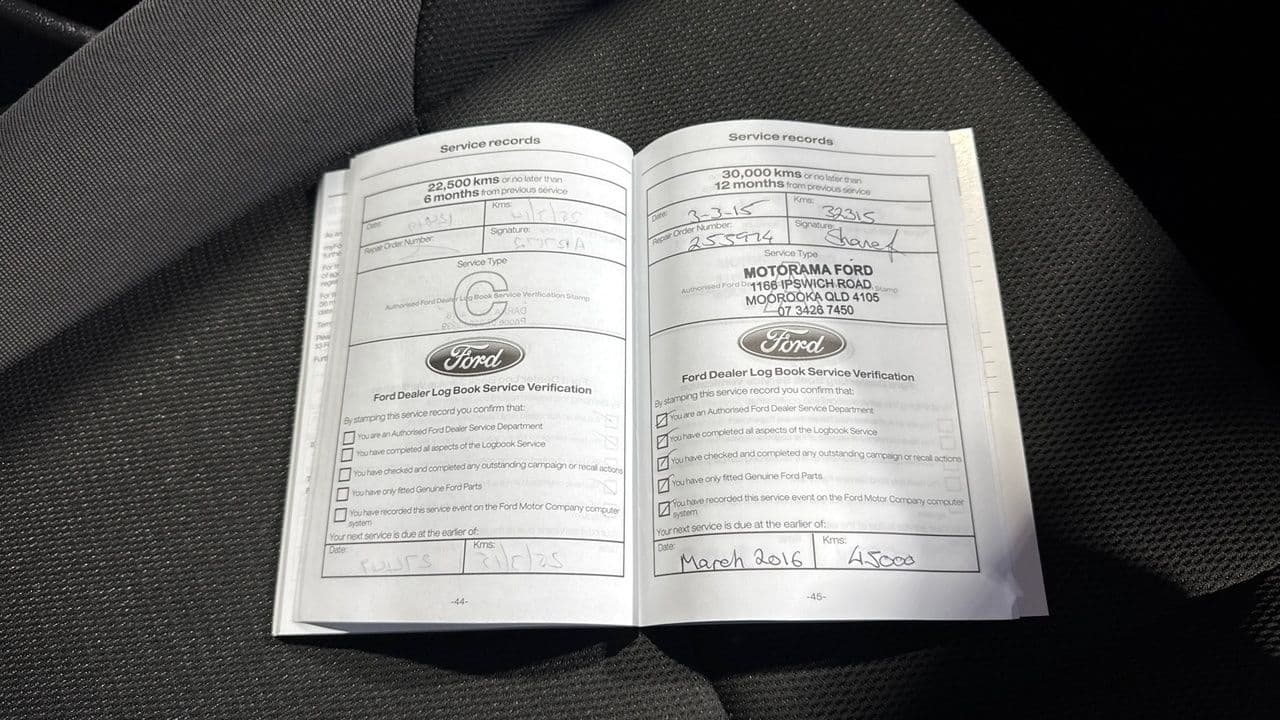 Service records
22,500 kms or no later than
6 months from previous service
Date:
Kms:
Repair Order Number:
Signature:
Service Type
C
Authorised Ford Dealer Log Book Service Verification Stamp
Ford
Ford Dealer Log Book Service Verification
By stamping this service record you confirm that:
You are an Authorised Ford Dealer Service Department
You have completed all aspects of the Logbook Service
You have checked and completed any outstanding campaign or recall actions
You have only fitted Genuine Ford Parts
You have recorded this service event on the Ford Motor Company computer
system
Your next service is due at the earlier of:
Date:
Kms:
-44-
Service records
30,000 kms or no later than
12 months from previous service
Date: 3-3-15
Kms: 32315
Repair Order Number: 255974
Signature:
Service Type
Authorised Ford Stamp
MOTORAMA FORD
1166 IPSWICH ROAD
MOOROOKA QLD 4105
07 3426 7450
Ford
Ford Dealer Log Book Service Verification
By stamping this service record you confirm that:
You are an Authorised Ford Dealer Service Department
You have completed all aspects of the Logbook Service
You have checked and completed any outstanding campaign or recall actions
You have only fitted Genuine Ford Parts
You have recorded this service event on the Ford Motor Company computer
system
Your next service is due at the earlier of:
Date: March 2016
Kms: 45000
-45-